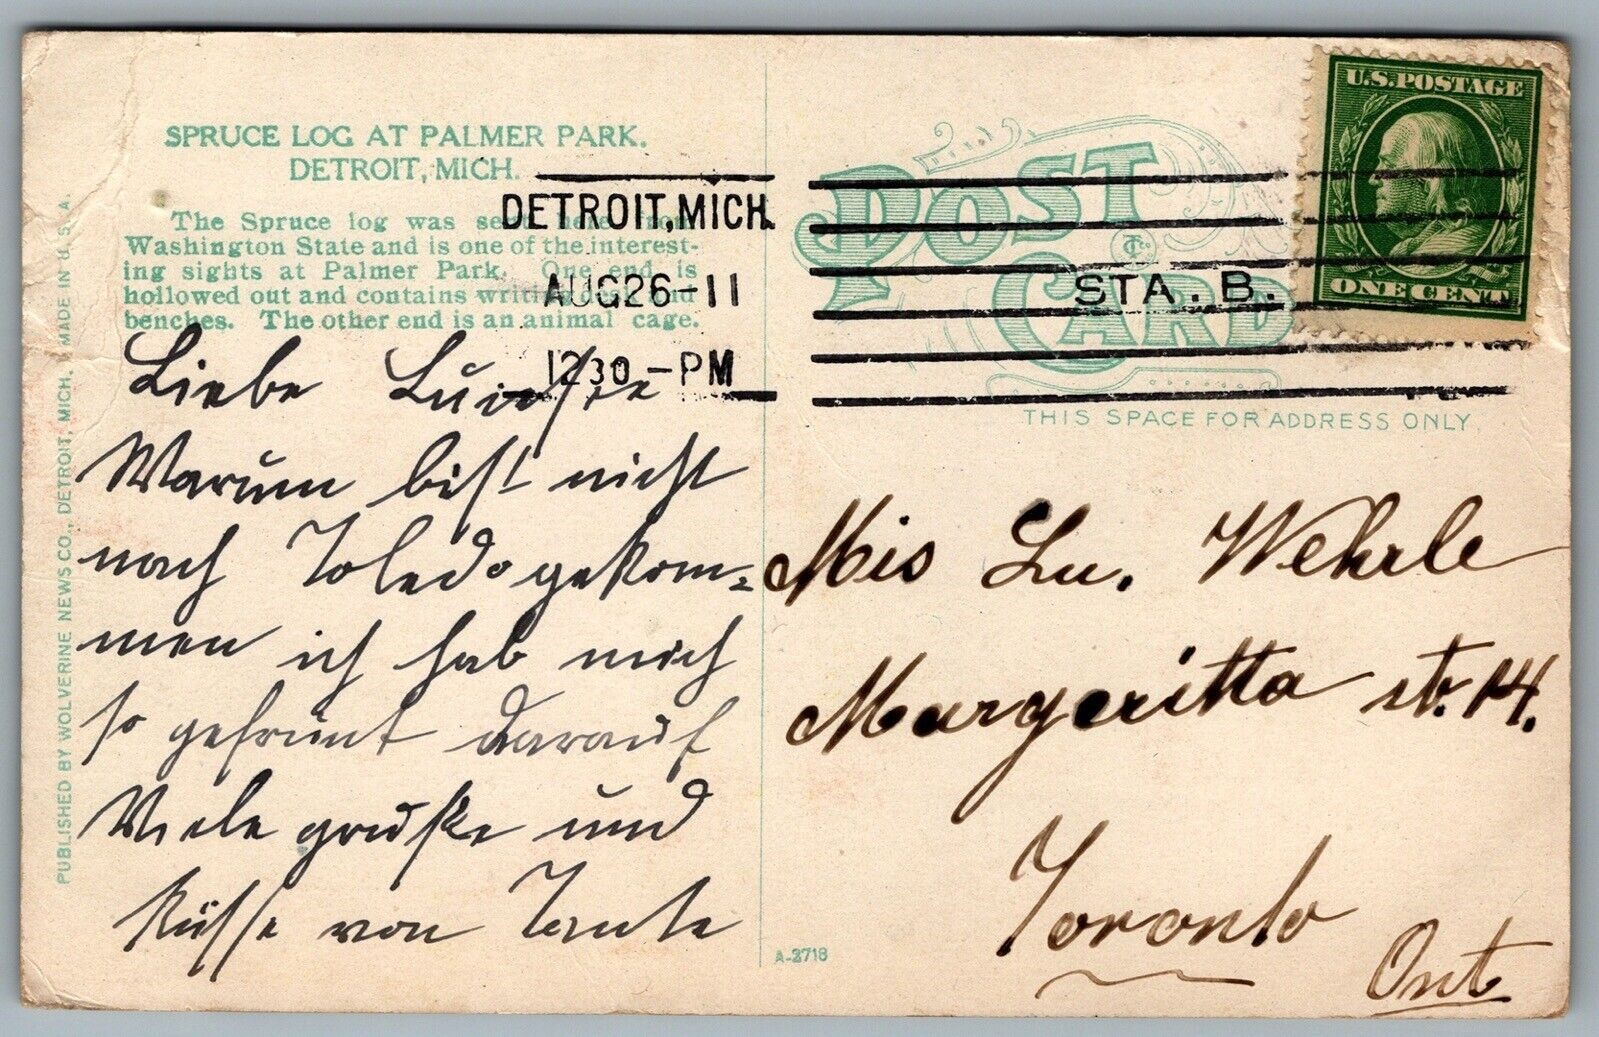 SPRUCE LOG AT PALMER PARK.
DETROIT, MICH.
The Spruce log was sent here from
Washington State and is one of the interest-
ing sights at Palmer Park. One end is
hollowed out and contains writing desk and
benches. The other end is an animal cage.
DETROIT, MICH.
AUG 26-11
12 30 -PM
STA. B.
POST CARD
U.S. POSTAGE
ONE CENT
THIS SPACE FOR ADDRESS ONLY.
Liebe Luise
Warum bist nicht
nach Toledo gekom=
men ich hab mich
so gefreut darauf
Viele grüße und
Küsse von Tante
Mis Lu. Wehrle
Margeritta str. 14.
Toronto
Ont
PUBLISHED BY WOLVERINE NEWS CO., DETROIT, MICH. MADE IN U.S.A.
A-2718